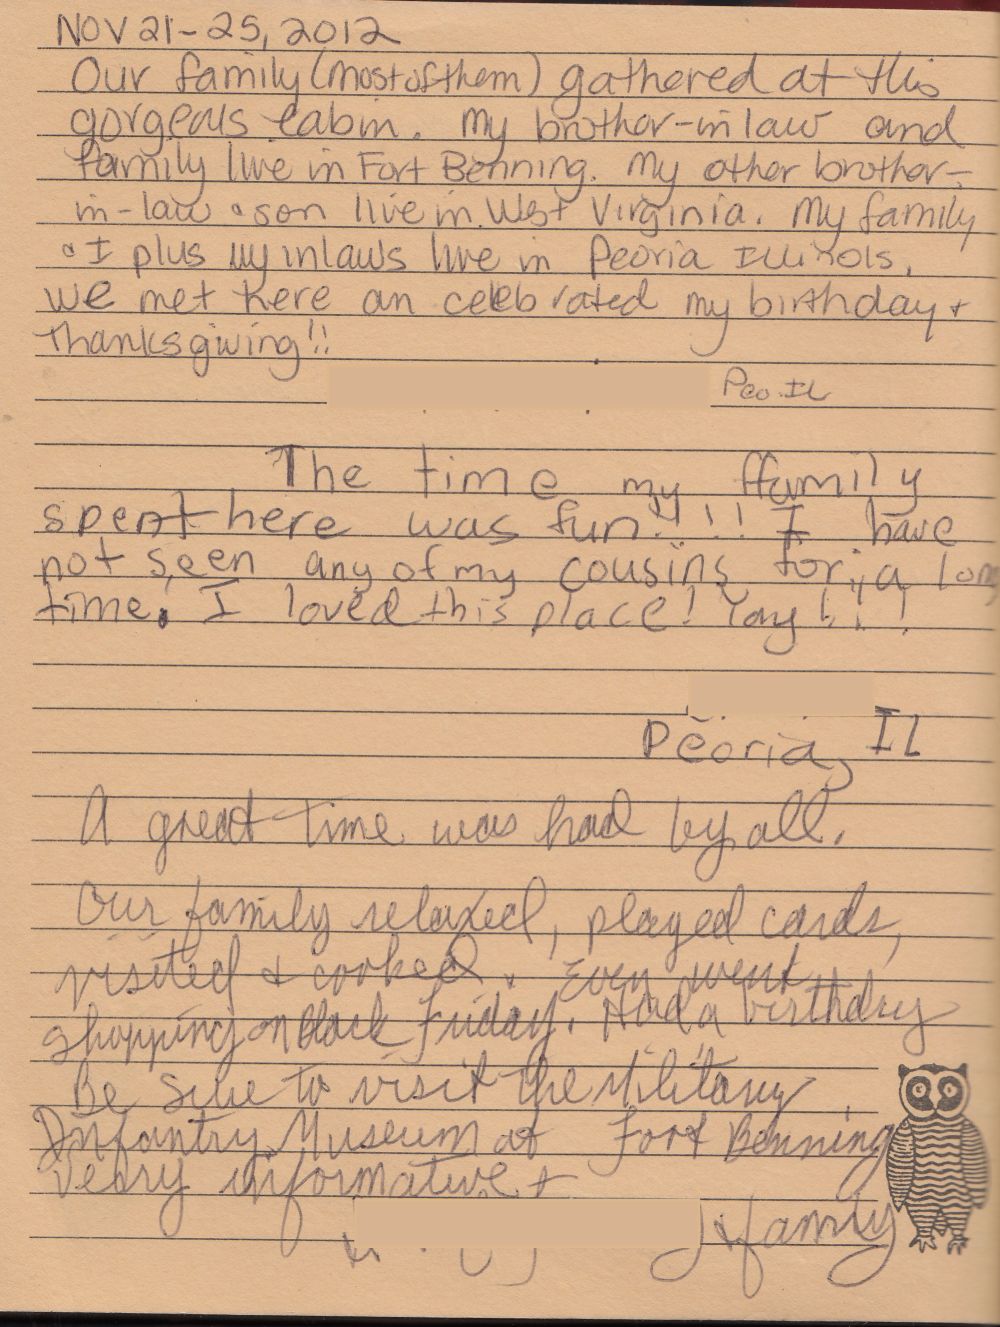 NOV 21-25, 2012
Our family (most of them) gathered at this
gorgeous cabin. My brother-in law and
family live in Fort Benning. My other brother-
in-law & son live in West Virginia. My family
& I plus my inlaws live in Peoria Illinois.
We met here an celebrated my birthday +
Thanksgiving!!
Peo. IL
The time my ffamily
spent here was fun!!!! I have
not seen any of my cousins for a long
time. I loved this place! Yay!!!
Peoria, IL
A great time was had by all.
Our family relaxed, played cards,
visited & cooked. Even went
shopping on Black Friday. Had a birthday
Be sure to visit the Military
Infantry Museum at Fort Benning
Veary informative +
& family